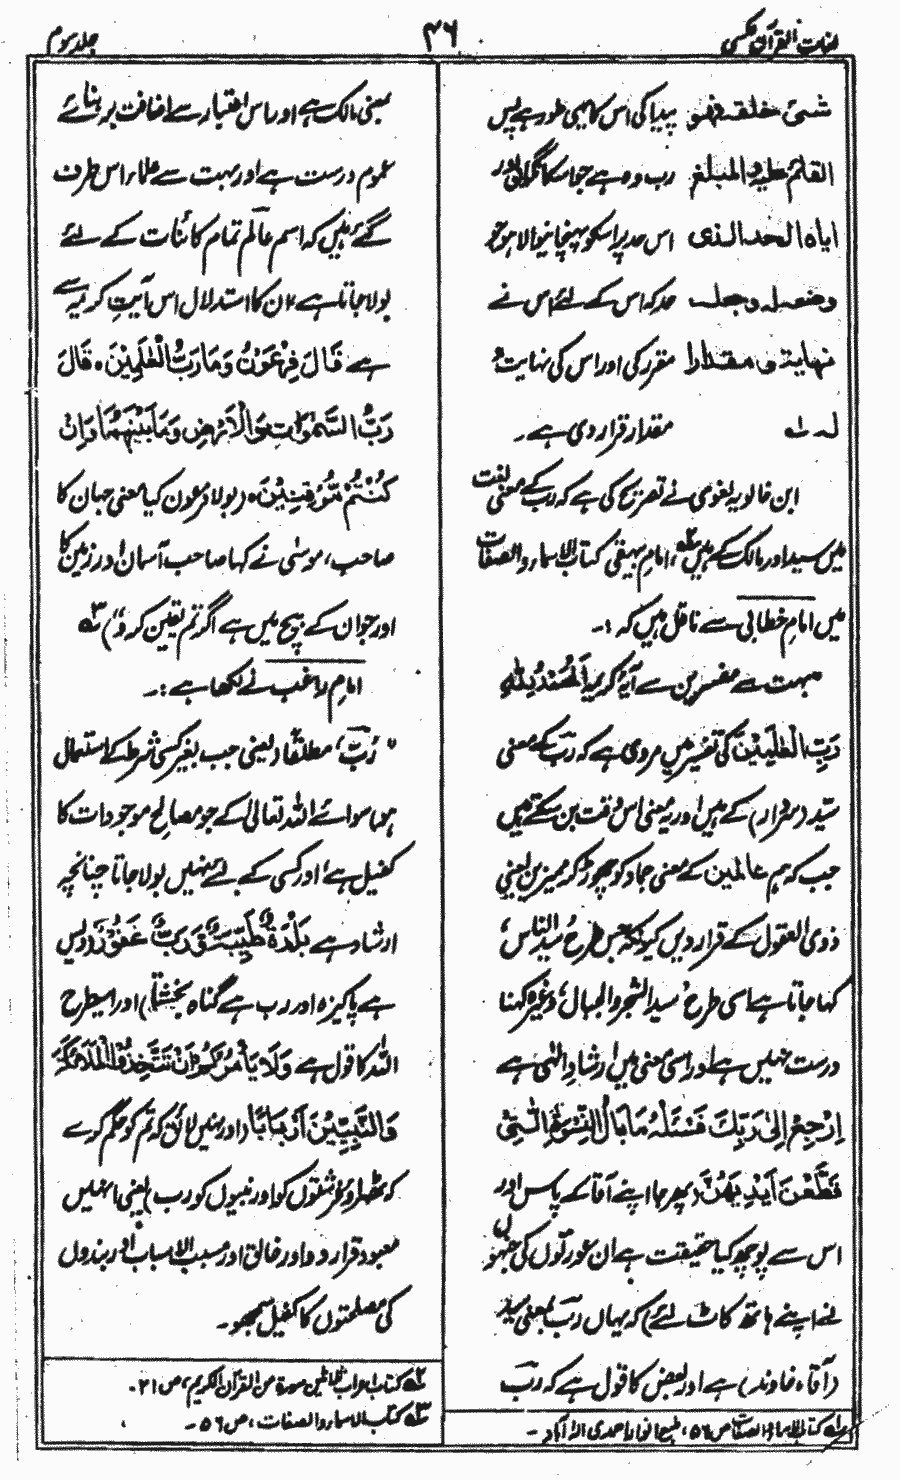 لغات القرآن مکمل
۴۶
جلد سوم
شئ خلقہ فھو پیدا کی اس کا یہی طور ہے پس
القائم علیہ والمبلغ رب وہ ہے جو اسکا نگران اور
ایاہ الحد الذی اس حد پر اسکو پہنچانیوالا ہو جو
وضعہ لہ وجعلہ حد کہ اس کے لئے اس نے
نھایۃ و مقدارا مقرر کی اور اس کی نہایت و
لہ مقدار قرار دی ہے ۔
ابن خالویہ لغوی نے تصریح کی ہے کہ رب کے معنی لغت
میں سید اور مالک کے ہیں، امام بیہقی کتاب الاسماء و الصفات
میں امام خطابی سے ناقل ہیں کہ :۔
بہت سے مفسرین سے آیۂ کریمہ اَلْحَمْدُ لِلّٰهِ
رَبِّ الْعٰلَمِیْنَ کی تفسیر میں مروی ہے کہ رب کے معنی
سیّد (سردار) کے ہیں اور یہ معنی اس وقت بن سکتے ہیں
جب کہ ہم عالمین کے معنی جماد کو چھوڑ کر ممیزین یعنی
ذوی العقول کے قرار دیں کیونکہ جس طرح سید الناس
کہا جاتا ہے اسی طرح سید الشجر والجبال وغیرہ کہنا
درست نہیں ہے اور اسی معنی میں ارشاد الٰہی ہے
اِرْجِعْ اِلٰی رَبِّكَ فَسْئَلْهُ مَا بَالُ النِّسْوَةِ الّٰتِیْ
قَطَّعْنَ اَیْدِیَهُنَّ (پھر جا اپنے آقا کے پاس اور
اس سے پوچھ کیا حقیقت ہے ان عورتوں کی جنہوں
نے اپنے ہاتھ کاٹ لئے) کہ یہاں رب بمعنی سید
(آقا، خاوند) ہے اور بعض کا قول ہے کہ رب
کتاب الاسماء والصفات ص ۵۶، طبع انوار احمدی الہ آباد ۔
معنی مالک ہے اور اس اعتبار سے اضافت بر بنائے
عموم درست ہے اور بہت سے علماء اس طرف
گئے ہیں کہ اسم عالم تمام کائنات کے لئے
بولا جاتا ہے، ان کا استدلال اس آیت کریمہ سے
ہے قَالَ فِرْعَوْنُ وَمَا رَبُّ الْعٰلَمِیْنَ ، قَالَ
رَبُّ السَّمٰوٰتِ وَالْاَرْضِ وَمَا بَیْنَهُمَا اِنْ
كُنْتُمْ مُّوْقِنِیْنَ ، (بولا فرعون کیا معنی جہان کا
صاحب ، موسیٰ نے کہا صاحب آسمان اور زمین کا
اور جو ان کے بیچ میں ہے اگر تم یقین کرو)
امام راغب نے لکھا ہے :۔
" رَبّ ، مطلقاً (یعنی جب بغیر کسی شرط کے استعمال
ہو) سوائے اللہ تعالیٰ کے جو مصالح موجودات کا
کفیل ہے، اور کسی کے لئے نہیں بولا جاتا چنانچہ
ارشاد ہے بَلْدَةٌ طَیِّبَةٌ وَّ رَبٌّ غَفُوْرٌ (دیس
ہے پاکیزہ اور رب ہے گناہ بخشتا) اور اسیطرح
اللہ کا قول ہے وَلَا یَأْمُرَكُمْ اَنْ تَتَّخِذُوا الْمَلٰٓئِكَةَ
وَالنَّبِیّٖنَ اَرْبَابًا (اور نہیں لائق کہ تم کو حکم کرے
کہ ٹھہراؤ فرشتوں کو اور نبیوں کو رب) یعنی انہیں
معبود قرار دو اور خالق اور مسبب الاسباب اور بندوں
کی مصلحتوں کا کفیل سمجھو ۔
۲ کتاب اعراب ثلاثین سورۃ من القرآن الکریم، ص ۲۱ ۔
۳ کتاب الاسماء والصفات ، ص ۵۶ ۔